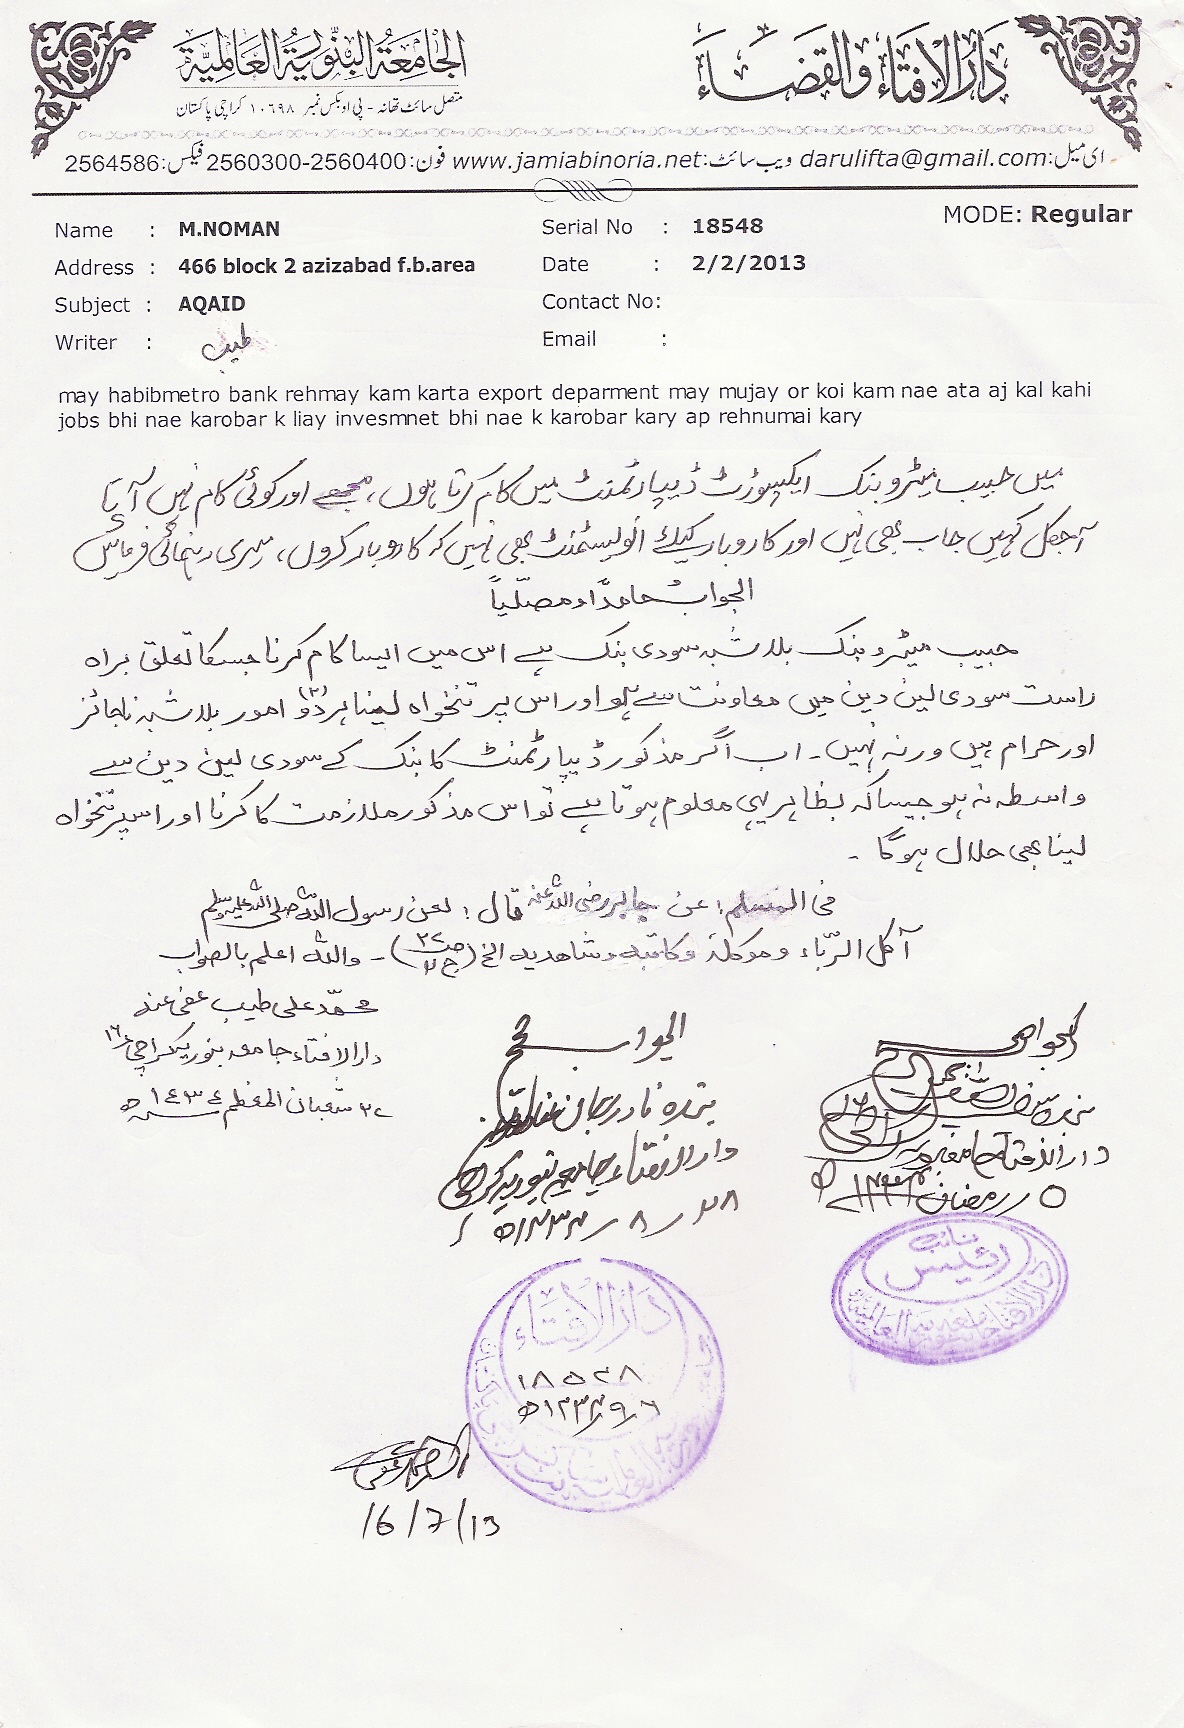 الجامعة البنورية العالمية
دار الافتاء والقضاء
متصل سائٹ تھانہ - پی او بکس نمبر ۱۰۶۹۸ کراچی پاکستان
ای میل:darulifta@gmail.com ویب سائٹ:www.jamiabinoria.net فون:2560300-2560400 فیکس:2564586
MODE: Regular
Name : M.NOMAN
Serial No : 18548
Address : 466 block 2 azizabad f.b.area
Date : 2/2/2013
Subject : AQAID
Contact No:
Writer : طیب
Email :
may habibmetro bank rehmay kam karta export deparment may mujay or koi kam nae ata aj kal kahi
jobs bhi nae karobar k liay invesmnet bhi nae k karobar kary ap rehnumai kary
میں حبیب میٹرو بنک ایکسپورٹ ڈیپارٹمنٹ میں کام کرتا ہوں، مجھے اور کوئی کام نہیں آتا
آجکل کہیں جاب بھی نہیں اور کاروبار کیلئے انویسٹمنٹ بھی نہیں کہ کاروبار کروں، میری رہنمائی فرمائیں
الجواب حامدًا ومصلّیاً
حبیب میٹرو بنک بلاشبہ سودی بنک ہے اس میں ایسا کام کرنا جسکا تعلق براہ
راست سودی لین دین میں معاونت سے ہو اور اس پر تنخواہ لینا ہر دو(۲) امور بلاشبہ ناجائز
اور حرام ہیں ورنہ نہیں۔ اب اگر مذکور ڈیپارٹمنٹ کا بنک کے سودی لین دین سے
واسطہ نہ ہو جیسا کہ بظاہر یہی معلوم ہوتا ہے تو اس مذکور ملازمت کا کرنا اور اسپر تنخواہ
لینا بھی حلال ہوگا ۔
فی المسلم: عن جابر رضی اللہ عنہ قال: لعن رسول اللہ صلی اللہ علیہ وسلم
آکل الرّباء وموکلہ وکاتبہ وشاھدیہ الخ (ج۲ ص۲۷)۔ واللہ اعلم بالصواب
محمّد علی طیب عفی عنہ
دار الافتاء جامعہ بنوریہ کراچی ۱۶
شعبان المعظم ١٤٣٤ھ
الجواب صحیح
بندہ نادر جان
دار الافتاء جامعہ بنوریہ کراچی
۲۸ / ۸ / ۱۴۳۴ھ
الجواب صحیح
دار الافتاء جامعہ بنوریہ
۵ رمضان ۱۴۳۴ھ
نائب
رئیس
دار الافتاء جامعہ بنوریہ العالمیہ
دار الافتاء
۱۸۵۴۸
۶/۹/۱۴۳۴ھ
16/7/13